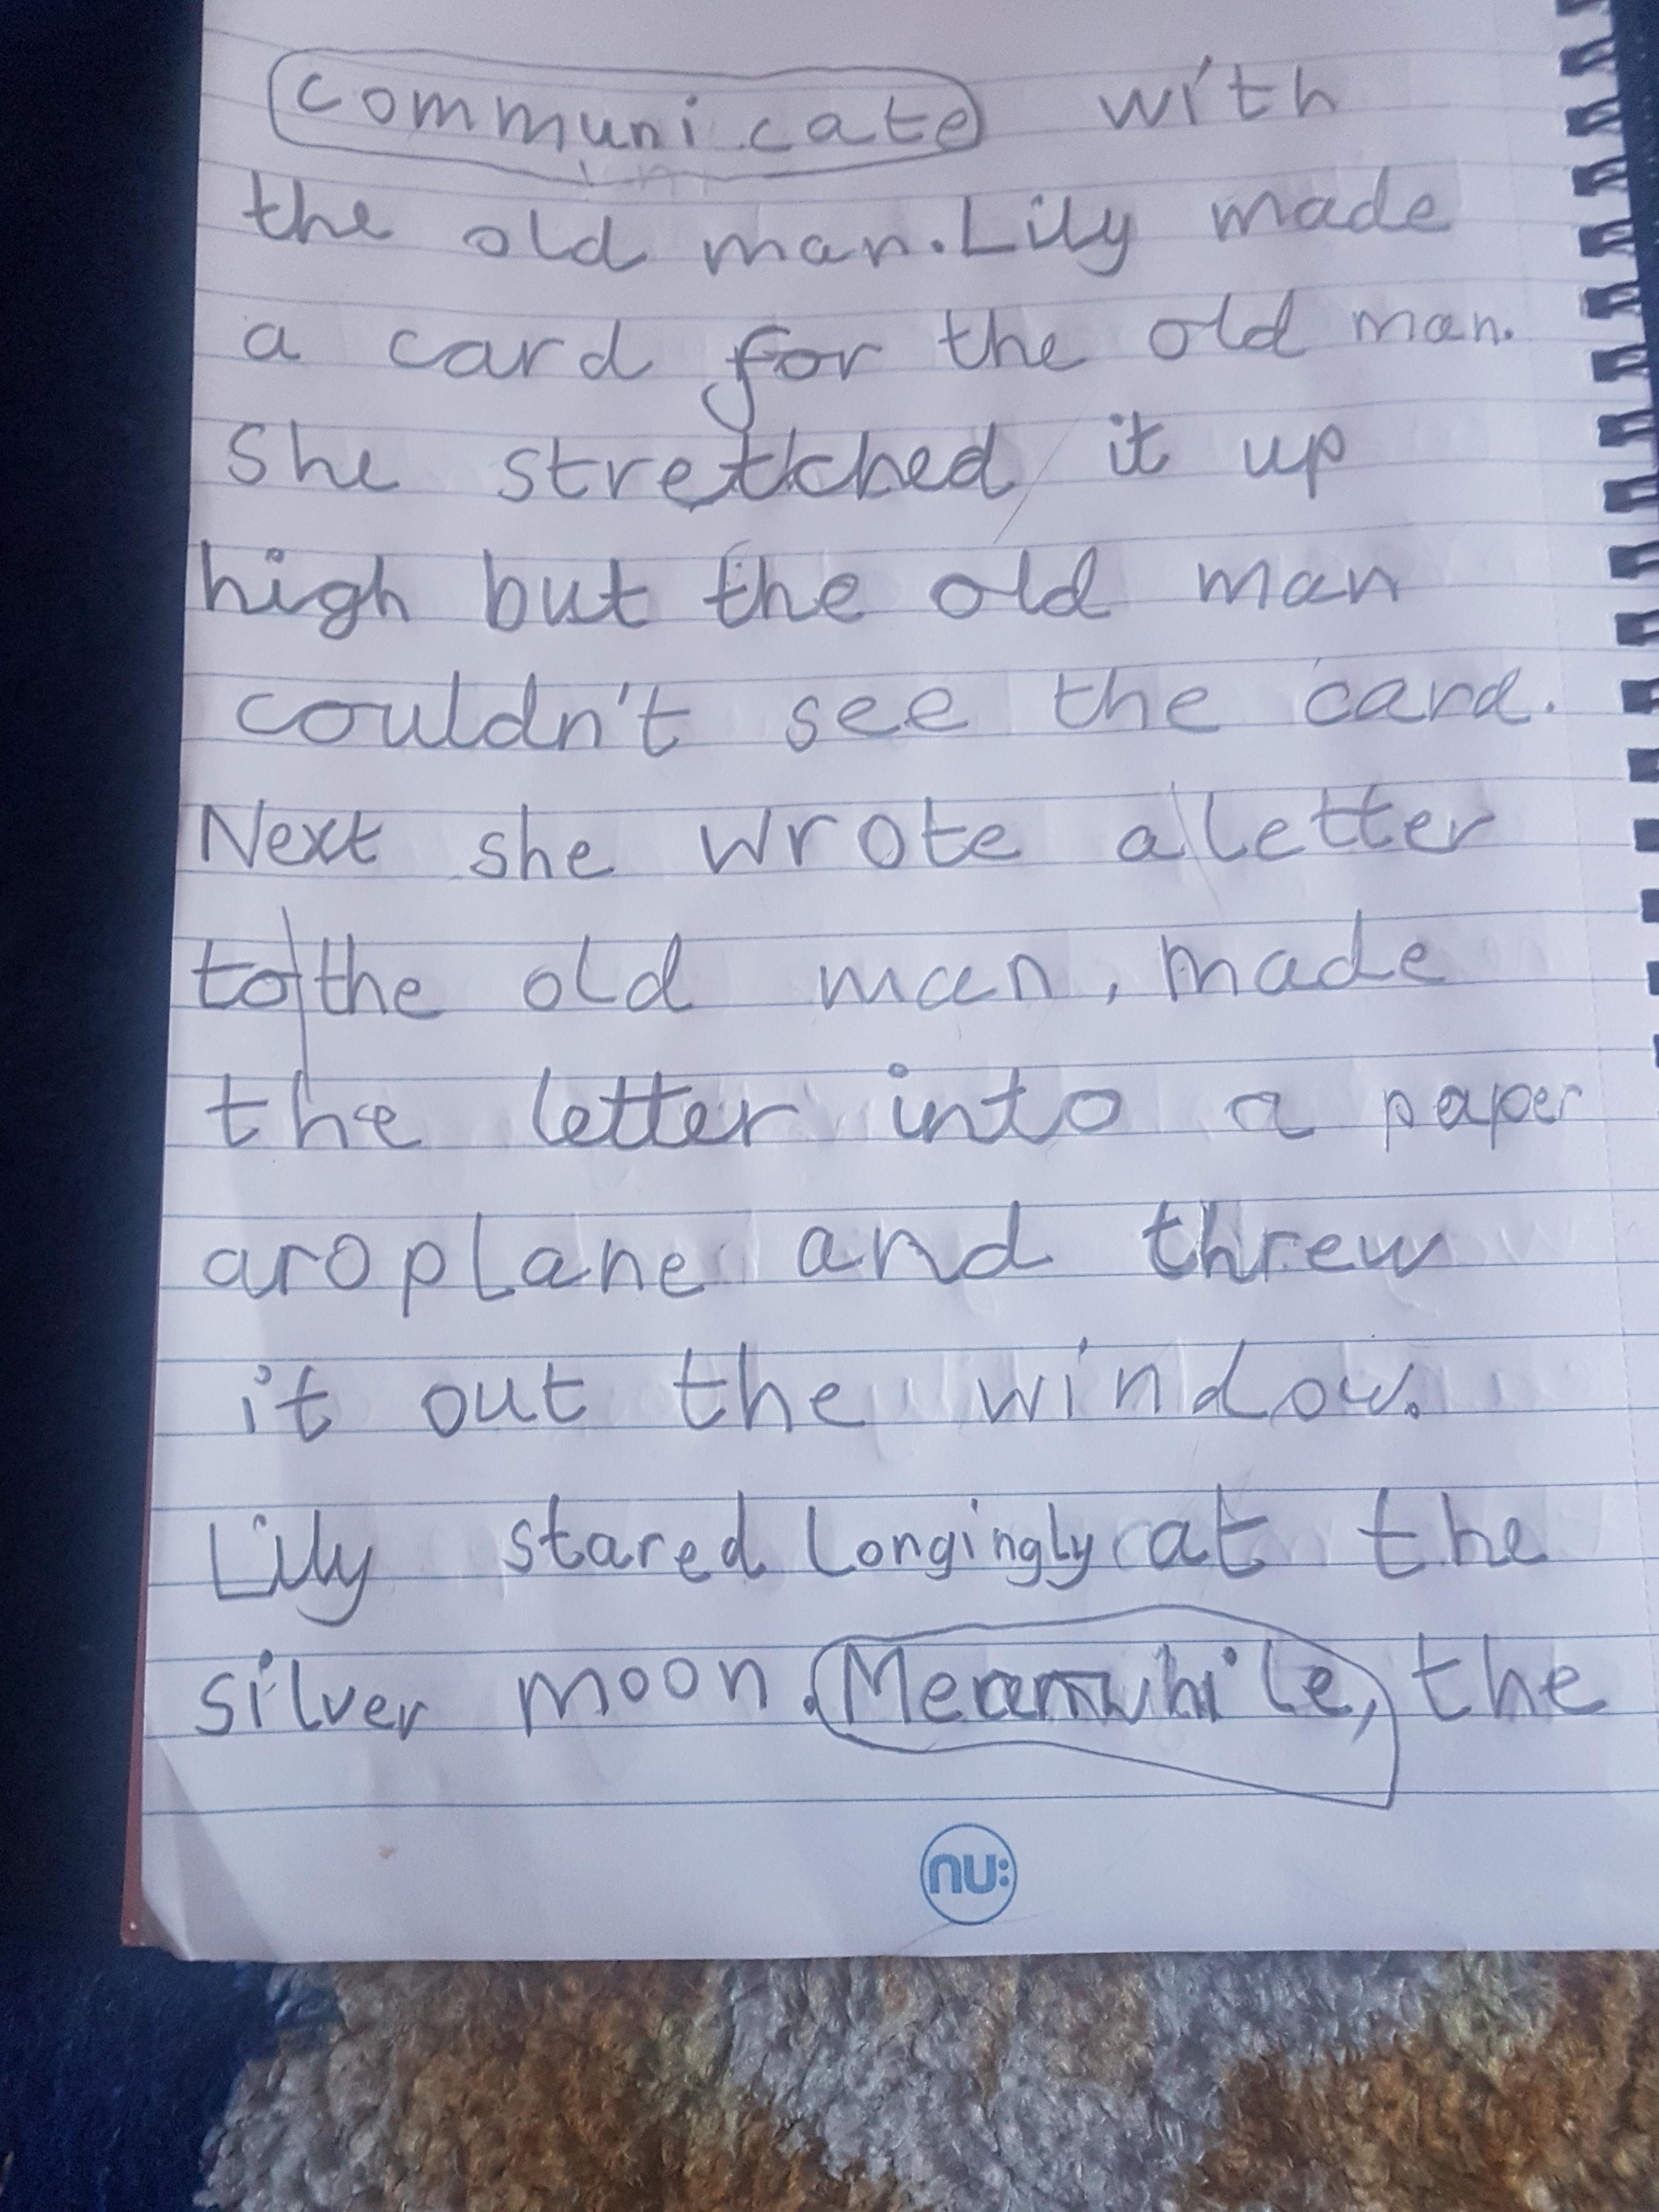 communicate with
the old man. Lily made
a card for the old man.
She stretched it up
high but the old man
couldn't see the card.
Next she wrote a letter
to the old man, made
the letter into a paper
aroplane and threw
it out the window.
Lily stared longingly at the
silver moon. Meanwhile, the
nu: